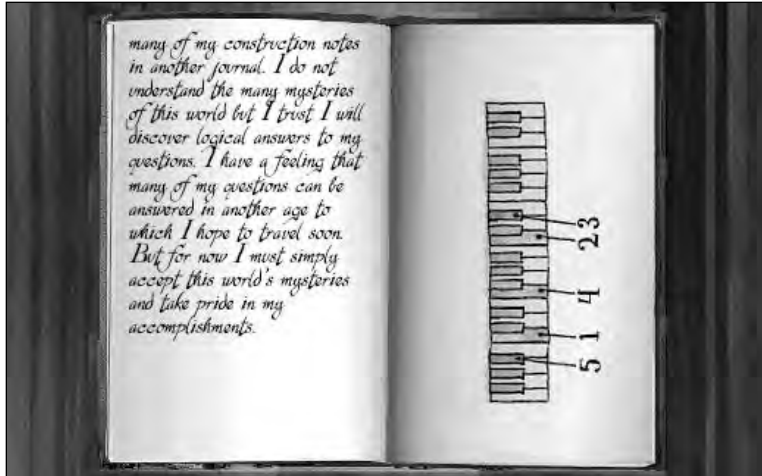 many of my construction notes
in another journal. I do not
understand the many mysteries
of this world but I trust I will
discover logical answers to my
questions. I have a feeling that
many of my questions can be
answered in another age to
which I hope to travel soon.
But for now I must simply
accept this world's mysteries
and take pride in my
accomplishments.
3
2
4
1
5